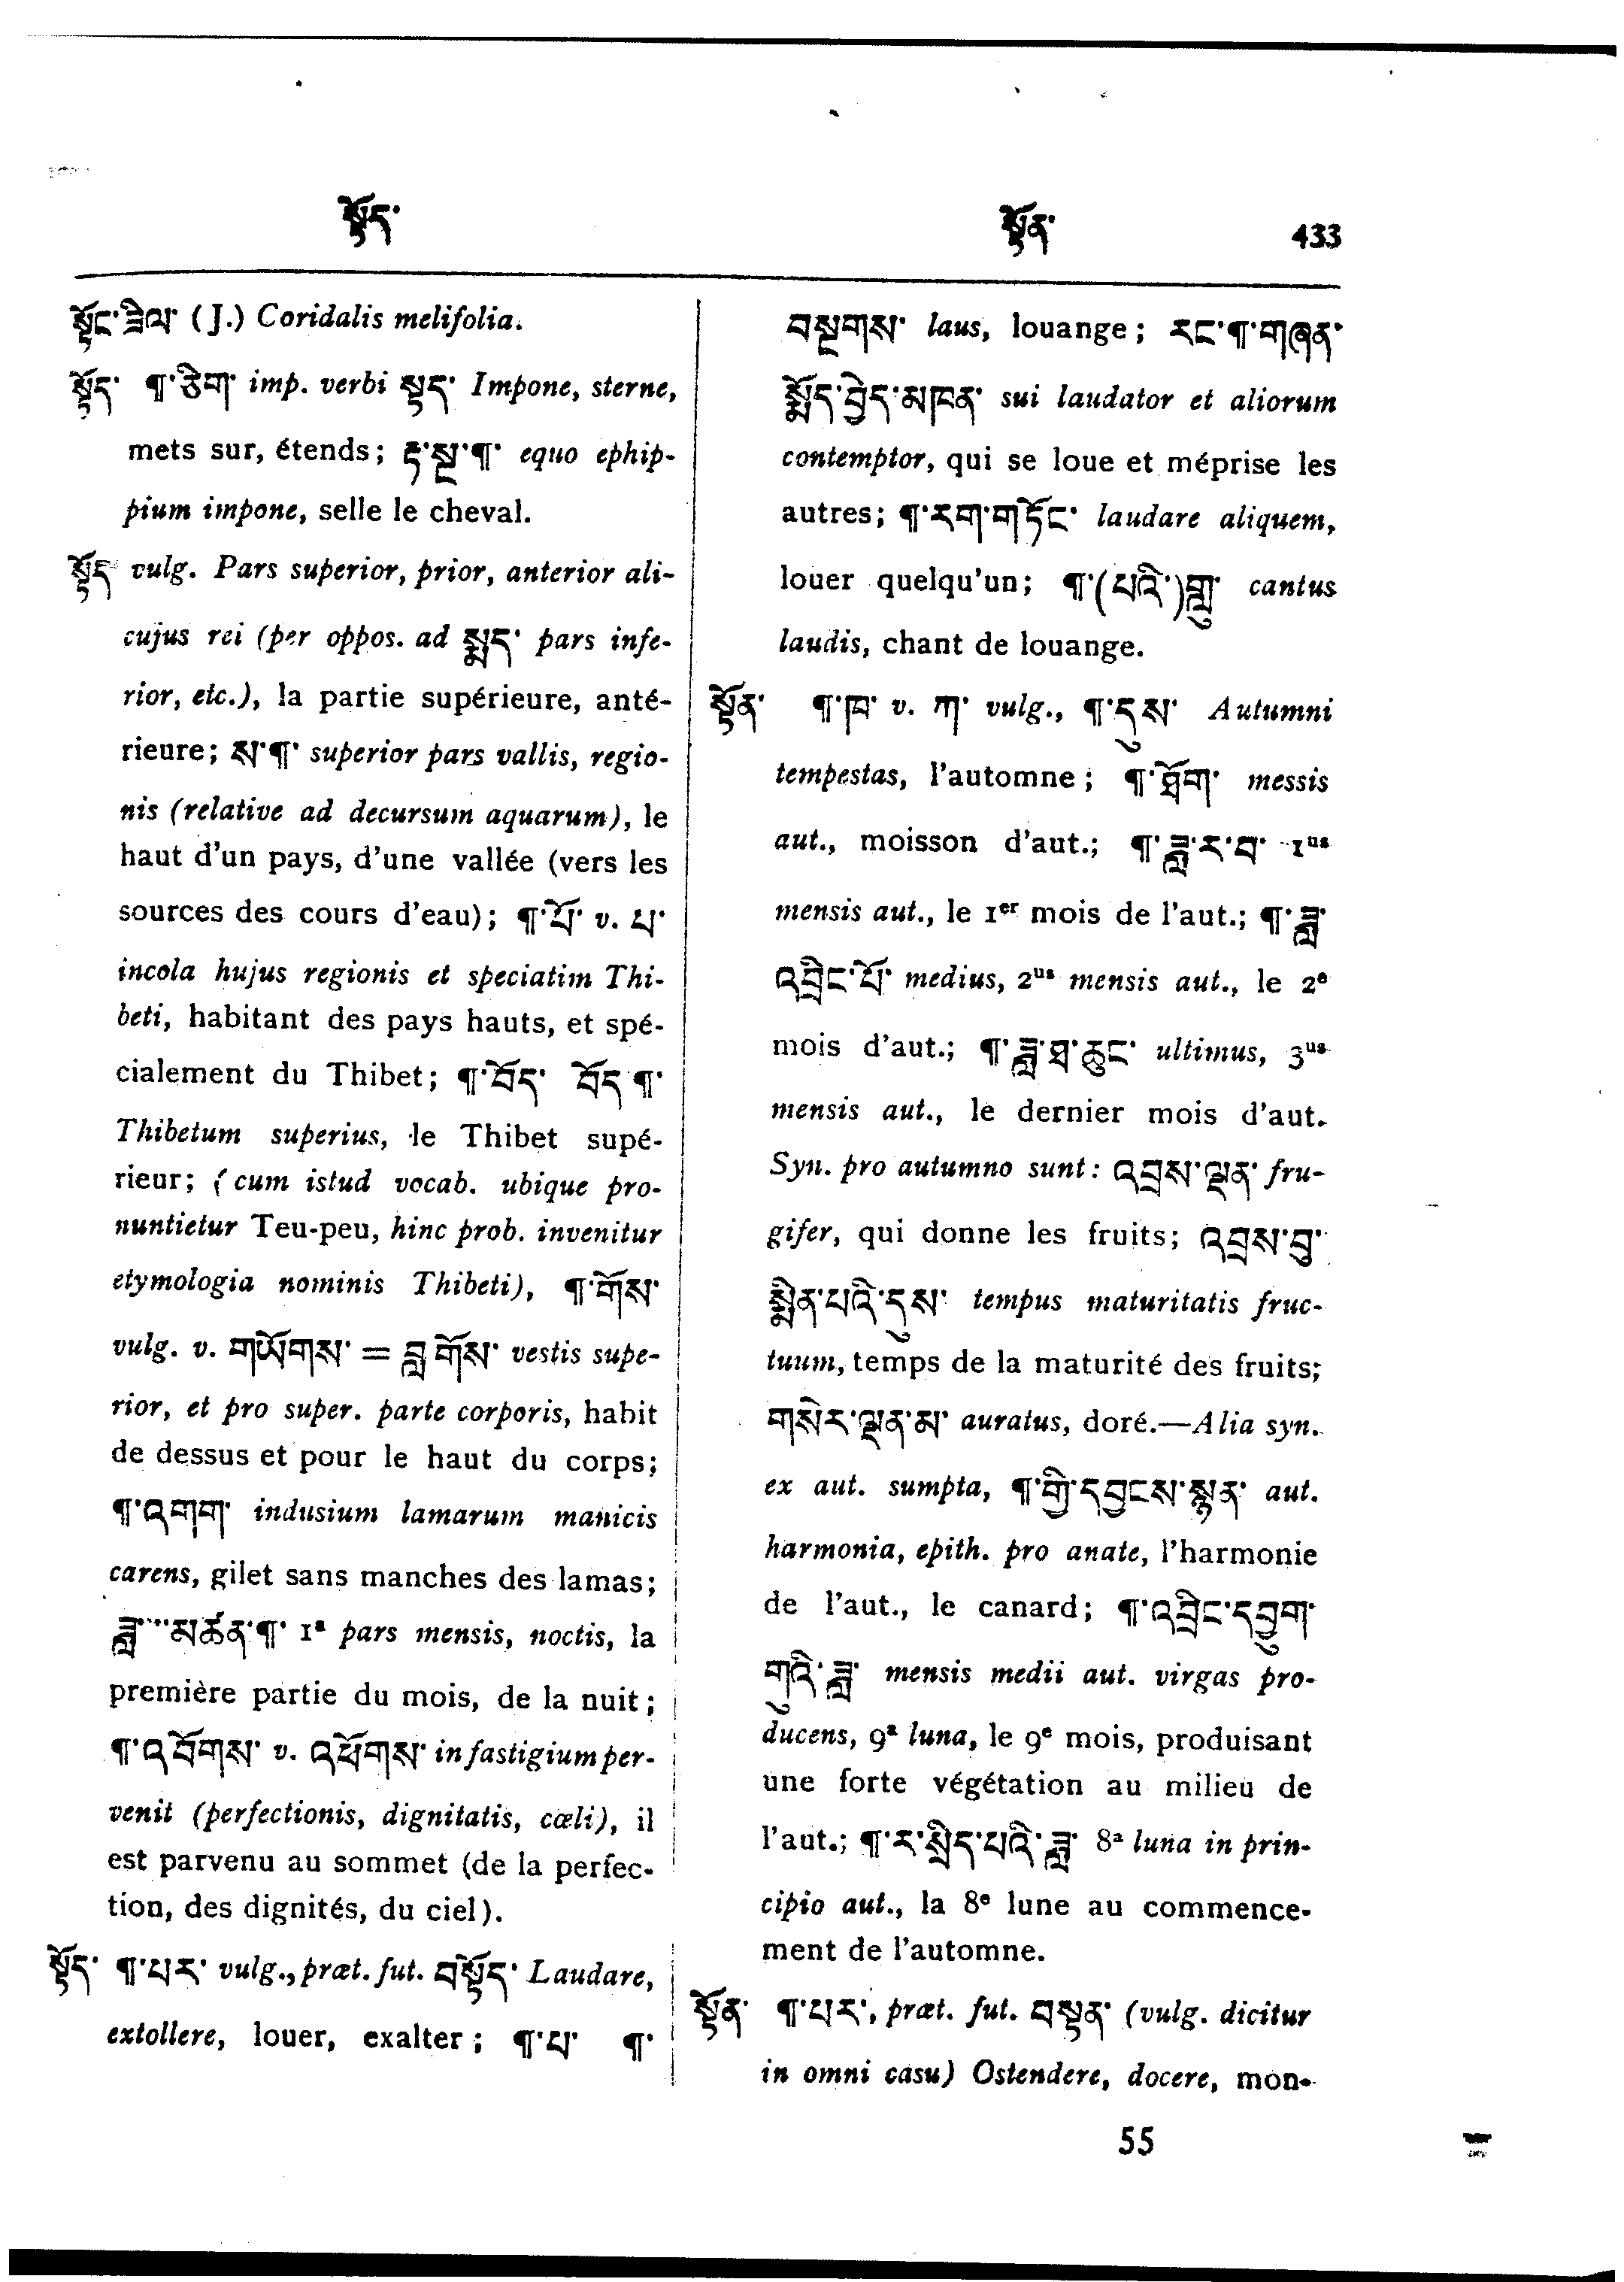 སྟོད་
སྟོན་ 433
སྟོང་ཟིལ་ (J.) Coridalis melifolia.
སྟོད་ ¶་ཅིག་ imp. verbi སྟད་ Impone, sterne,
mets sur, étends; རྟ་སྒ་¶་ equo ephip-
pium impone, selle le cheval.
སྟོད་ vulg. Pars superior, prior, anterior ali-
cujus rei (per oppos. ad སྨད་ pars infe-
rior, etc.), la partie supérieure, anté-
rieure; ས་¶་ superior pars vallis, regio-
nis (relative ad decursum aquarum), le
haut d'un pays, d'une vallée (vers les
sources des cours d'eau); ¶་པོ་ v. པ་
incola hujus regionis et speciatim Thi-
beti, habitant des pays hauts, et spé-
cialement du Thibet; ¶་བོད་ བོད་¶་
Thibetum superius, le Thibet supé-
rieur; (cum istud vocab. ubique pro-
nuntietur Teu-peu, hinc prob. invenitur
etymologia nominis Thibeti), ¶་གོས་
vulg. v. གཡོགས་ = བླ་གོས་ vestis supe-
rior, et pro super. parte corporis, habit
de dessus et pour le haut du corps;
¶་འགག་ indusium lamarum manicis
carens, gilet sans manches des lamas;
ཟླ་...མཚན་¶་ 1ª pars mensis, noctis, la
première partie du mois, de la nuit;
¶་འབོགས་ v. འཕོགས་ in fastigium per-
venit (perfectionis, dignitatis, cœli), il
est parvenu au sommet (de la perfec-
tion, des dignités, du ciel).
སྟོད་ ¶་པར་ vulg., præt. fut. བསྟོད་ Laudare,
extollere, louer, exalter; ¶་པ་ ¶་
བསྔགས་ laus, louange; རང་¶་གཞན་
སྨོད་བྱེད་མཁན་ sui laudator et aliorum
contemptor, qui se loue et méprise les
autres; ¶་རག་གཏོང་ laudare aliquem,
louer quelqu'un; ¶་(པའི་)གླུ་ cantus
laudis, chant de louange.
སྟོན་ ¶་ཁ་ v. ཀ་ vulg., ¶་དུས་ Autumni
tempestas, l'automne; ¶་ཐོག་ messis
aut., moisson d'aut.; ¶་ཟླ་ར་བ་ 1us
mensis aut., le 1er mois de l'aut.; ¶་ཟླ་
འབྲིང་པོ་ medius, 2us mensis aut., le 2e
mois d'aut.; ¶་ཟླ་ཐ་ཆུང་ ultimus, 3us
mensis aut., le dernier mois d'aut.
Syn. pro autumno sunt: འབྲས་ལྡན་ fru-
gifer, qui donne les fruits; འབྲས་བུ་
སྨིན་པའི་དུས་ tempus maturitatis fruc-
tuum, temps de la maturité des fruits;
གསེར་ལྡན་མ་ auratus, doré.—Alia syn.
ex aut. sumpta, ¶་གྱི་དབྱངས་སྙན་ aut.
harmonia, epith. pro anate, l'harmonie
de l'aut., le canard; ¶་འབྲིང་དབྱུག་
གུའི་ཟླ་ mensis medii aut. virgas pro-
ducens, 9ª luna, le 9e mois, produisant
une forte végétation au milieu de
l'aut.; ¶་ར་སྲིད་པའི་ཟླ་ 8ª luna in prin-
cipio aut., la 8e lune au commence-
ment de l'automne.
སྟོན་ ¶་པར་, præt. fut. བསྟན་ (vulg. dicitur
in omni casu) Ostendere, docere, mon-
55